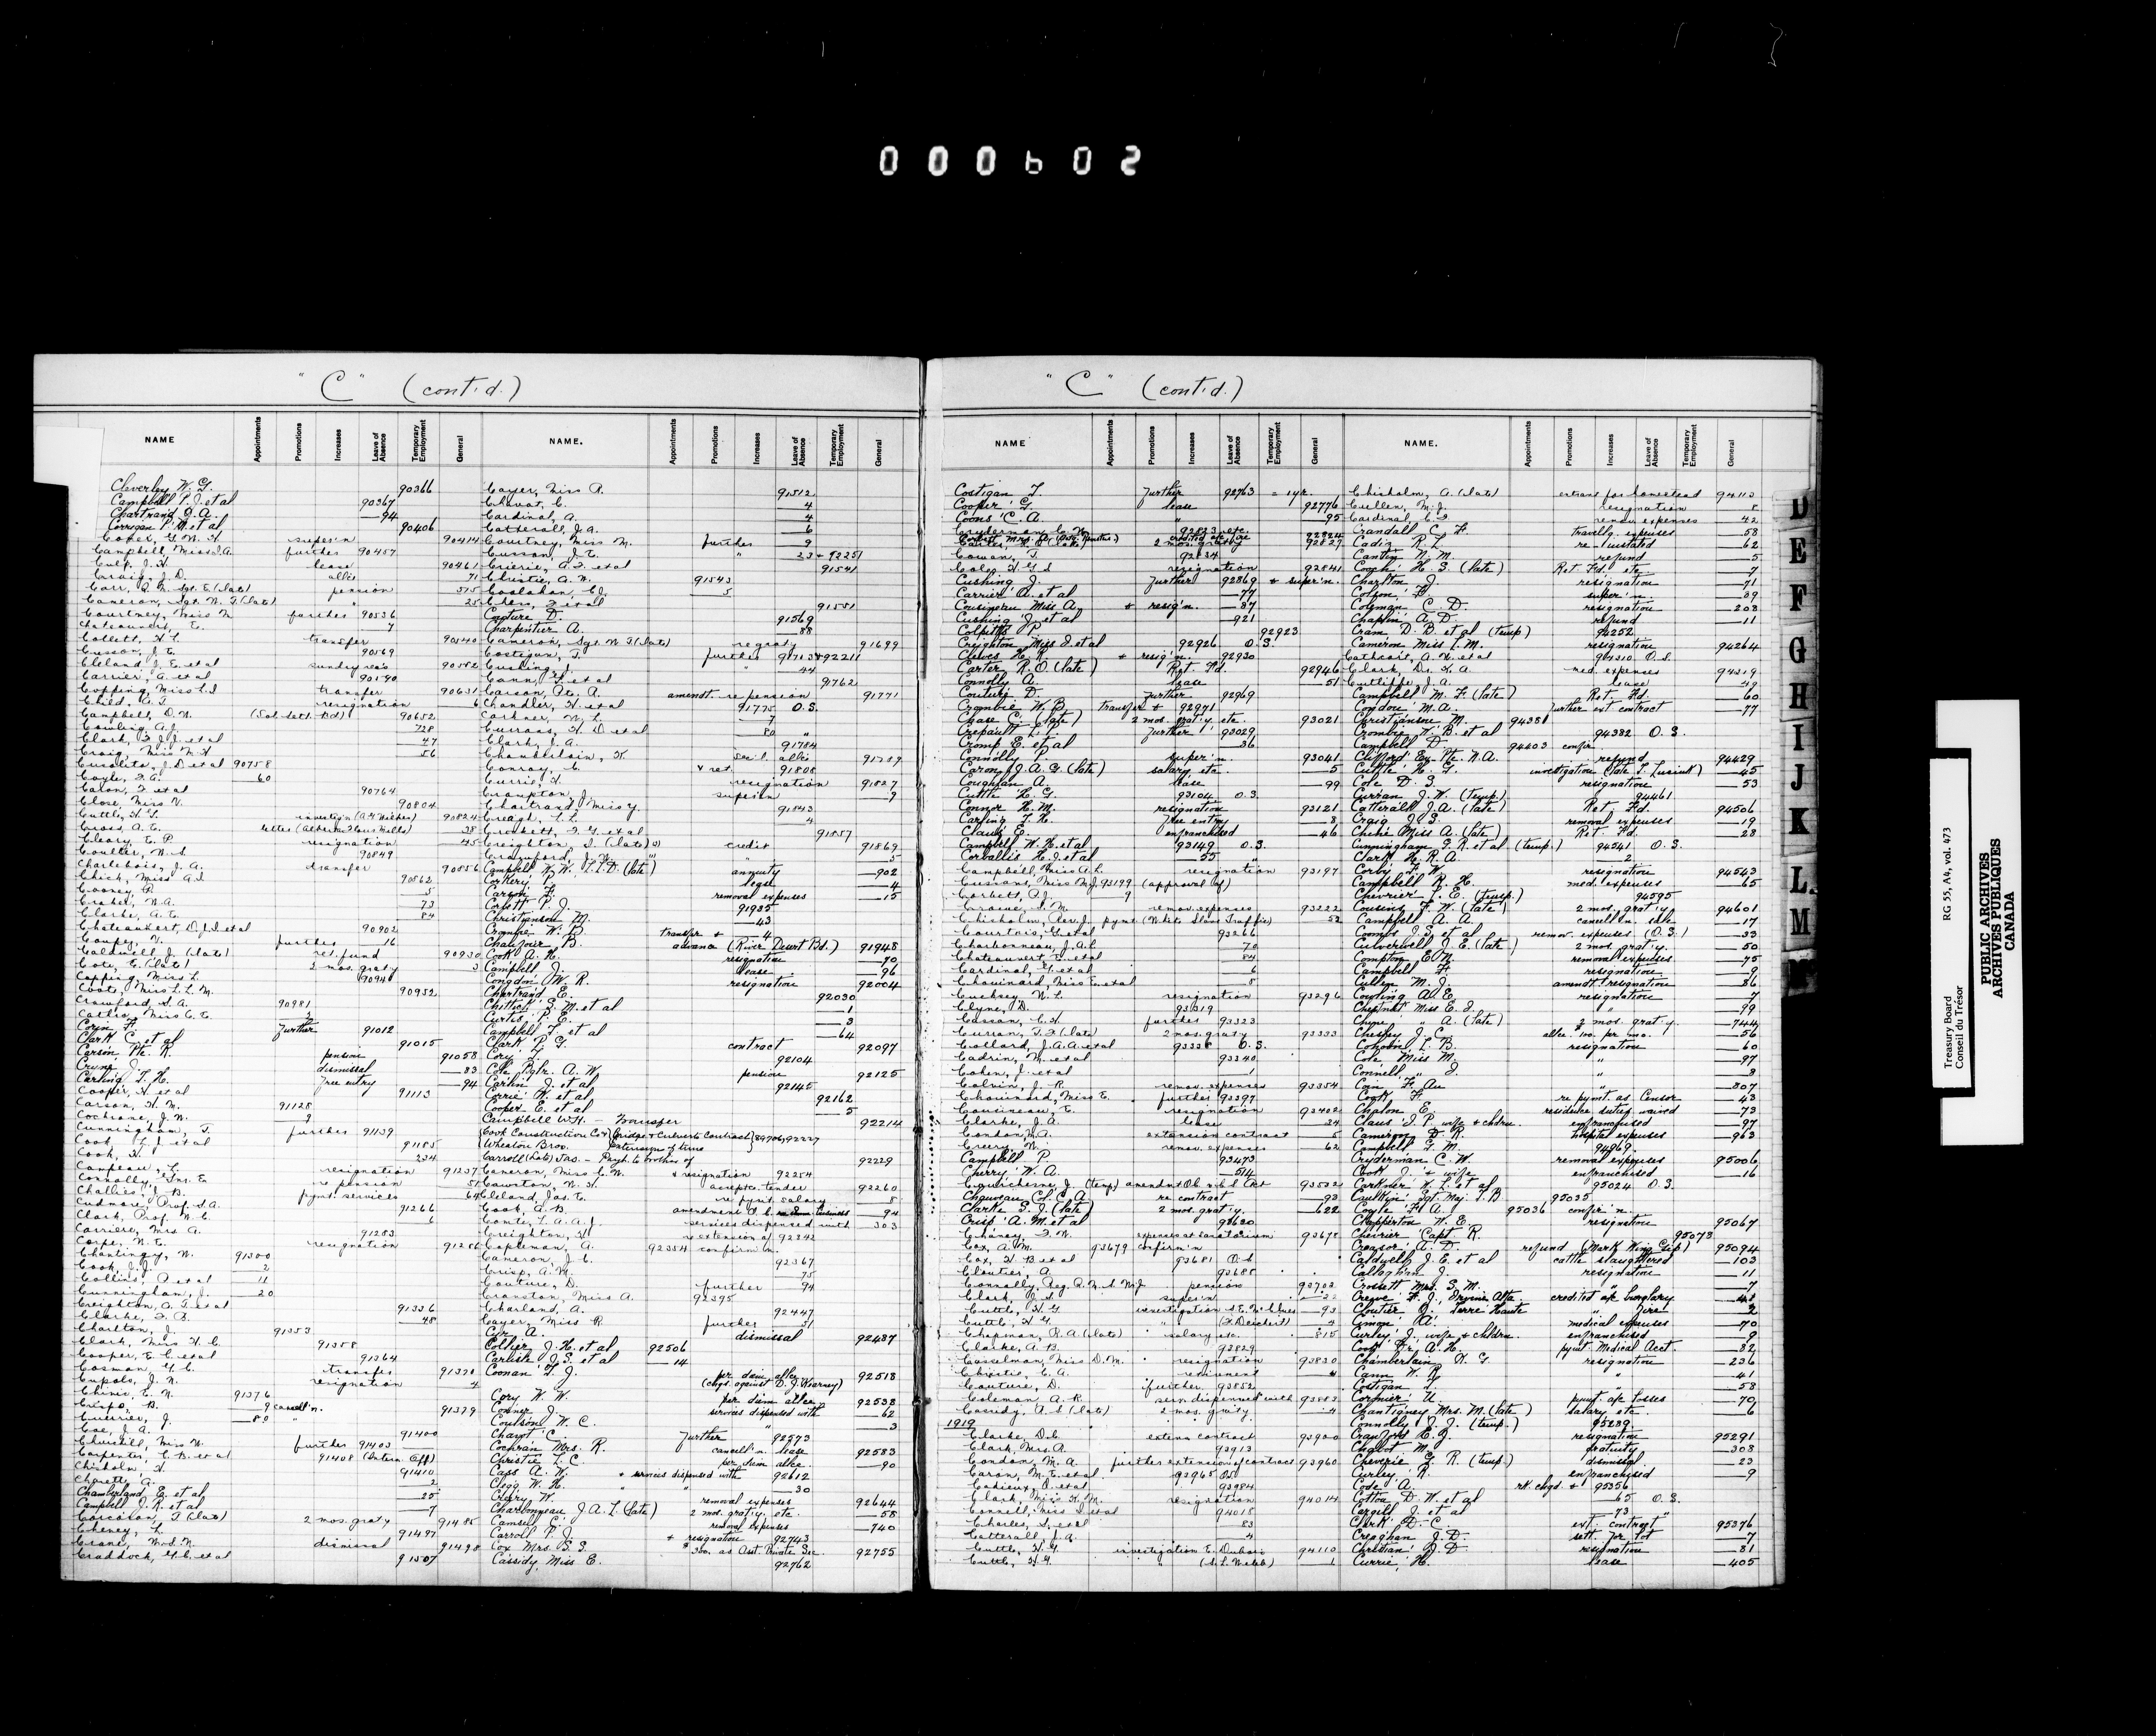 000602
"C" (cont'd.)
NAME Appointments Promotions Increases Leave of Absence Temporary Employment General NAME. Appointments Promotions Increases Leave of Absence Temporary Employment General
Cleverley W. G. 90366
Campbell P. J. et al 90367
Chartrand J. A. 94
Corrigan P. M. et al 90406
Campbell, Miss I. A. further 90457
Culp, J. H. lease 90461
Craig, J. D. allce 71
Courtney, Miss M. further 90536
Collett, H. C. transfer 90540
Cusson, J. E. 90569
Cleland J. E. et al
Carrier, A. et al 90590
Copping, Miss L. I. transfer 90631
Child, A. T. resignation 6
Campbell, D. N. (Sol. Sett. Bd) 90652
Cowling A. J. 728
Clark, F. J. J. et al 47
Craig, Miss M. H. 56
Coyle, F. A. 60
Caron, F. et al 90764
Close, Miss V. 90804
Cross, A. E.
Cleary, E. P. resignation 45
Coulter, W. S. 90849
Charlebois, J. A. transfer 90856
Chick, Miss A. I. 90862
Cooney R. 5
Clarke, A. E. 84
Chateauvert, O. J. D. et al 90902
Caldwell J. (late) ret. fund 90930
Cote, E. (late) 2 mos. graty 3
Coote, Miss L. L. M. 90952
Crawford, S. A. 90981
Corin F. further 91012
Clark C. et al 91015
Carson, Pte. R. pension 91058
Cryne J. dismissal 83
Carling T. H. free entry 94
Cooper, H. et al 91113
Carson, H. M. 91128
Cochrane, J. N. 9
Cunningham, T. further 91139
Cook, L. J. et al 91185
Cook, H. 234
Campeau, L. resignation 91237
Connolly, Jno. E. re pension 51
Challies, J. B. pymt. services 64
Cudmore, Prof. S. A. 91266
Clark, Prof. W. C. 6
Carriere, Mrs A. 91283
Corpe, W. E. resignation 91286
Chantingy, N. 91300
Cook, J. J. 2
Collins, P. et al 11
Cunningham, J. 20
Creighton, A. G. et al 91336
Clarke, F. B. 48
Charlton, J. 91353
Clark, Miss H. C. 91358
Cooper, E. C. et al 91364
Cosman, G. C. transfer 91370
Cupolo, J. N. resignation 4
Chinic, E. N. 91376
Crispo, B. 9 cancell'n.
Guerrier, J. 80 " 91379
Coe, J. A. 91400
Churchill, Miss W. further 91403
Carpenter, C. B. et al 91408 (Intern. Off)
Chisholm, H. 91410
Charette, A. 2
Chamberland E. et al 25
Campbell J. R. et al 7
Corcoran, T. (late) 2 mos. graty 91485
Cheney, L. 91497
Crane, Wm. N. dismissal 91498
Craddock, G. C. et al 91507
Cayer, Miss R. 91512
Chavat, C. 4
Cardinal, A. 4
Catterall, J. A. 6
Courtney, Miss M. further 9
Cusson, J. E. " 23 + 92251
Crierie, A. F. et al 91541
Christie, A. N. 91543
Chess, F. et al 91551
Couture D. 91569
Charpentier A. 88
Cameron, Sgt. N. F. (late) re graty 91699
Costigan, T. further 91713 + 92211
Cushing J. " 44
Cann, F. et al 91762
Carson, Ate. A. amendt. re pension 91771
Chandler, H. et al 91775 O.S.
Carkner, W. L. 7
Currans, H. D. et al 80 "
Clark, J. A. 91784
Conway, C. + ret. 91808
Currie, H. resignation 91827
Crampton, J. superan 9
Chartrand, Miss Y. 91843
Creagh, L. L. 4
Crockett, F. G. et al 91857
Creighton, D. (late) credit 91869
Crawford, J. W. " " 5
Campbell W. W. L.L.D. (late) annuity 902
Corkery P. legal 4
Carson F. removal expenses 15
Corbett P. J. 91935
Christianson M. 43
Crombie W. B. transfer + 4
Chaugour B. advance (River Desert Bd.) 91948
Cook A. H. resignation 70
Campbell J. lease 96
Congdon W. R. resignation 92004
Chartrand E. 92030
Chittick G. M. et al 1
Curtis P. E. 3
Campbell F. et al 64
Clark P. G. contract 92097
Cory T. 92104
Cole Bglr. A. W. pension 92125
Carlin J. et al 92145
Corrie H. et al 92162
Cooper E. et al 5
Campbell W. H. Transfer 92214
Cook Construction Co & Wheaton Bros. Bridge & Culverts Contract Extensions of time 89706, 92227
Carroll (late) Jas. - Paymt. to brother of 92229
Cameron, Miss C. W. + resignation 92254
Cawston, W. H. accept. tender 92260
Cleland, Jas. E. re pymt. salary 8
Cook, A. B. 94
Comte, L. A. A. J. services dispensed with 303
Creighton, H. re extension of 92342
Copleman, A. 92354 confirm'n.
Cameron, J. C. 92367
Crisp, A. M. 75
Couture, D. further 94
Cranston, Miss A. 92395
Charland, A. 92447
Cayer, Miss R. further 51
Cyr A. dismissal 92487
Collier J. H. et al 92506
Carlisle J. S. et al 14
Coonan T. J. per diem allce (chgd. against D. J. Kearney) 92518
Cory W. W. per diem allce 92538
Conner J. services dispensed with 62
Coulson W. C. 3
Chavot C. Further 92573
Cochran Mrs. R. cancell'n. lease 92583
Christie L. C. per diem allce 90
Cass A. W. + services dispensed with 92612
Clegg W. H. " " 30
Cleary W. removal expenses 92644
Charbonneau J. A. L. (late) 2 mos. grat'y. etc. 58
Camsell C. removal expenses 740
Carroll P. J. + resignation 92743
Cox Mrs. S. S. $300. as Asst. Private Sec. 92755
Cassidy, Miss E. 92762
"C" (cont'd.)
NAME Appointments Promotions Increases Leave of Absence Temporary Employment General NAME. Appointments Promotions Increases Leave of Absence Temporary Employment General
Costigan T. Further 92763 = 1 yr.
Cooper G. lease 92776
Coons C. A. " 95
Cowan, T. 92834
Cole, H. G. S. resignation 92841
Cushing J. Further 92869 + super'n.
Carrier A. et al 77
Cousineau Miss A. + resig'n. 87
Cushing J. et al 921
Colpitts P. 92923
Creighton Miss D. et al 92926 O.S.
Cleeves H. R. + resig'n. 92930
Carter R. O. (late) Ret. Fd. 92946
Connolly A. lease 51
Couture D. Further 92969
Crombie W. B. transfer + 92971
Chase C. (late) 2 mos. grat'y. etc. 93021
Crepault L. C. Further 93029
Cromp E. et al 36
Connolly P. Super'n. 93041
Caron J. A. G. (late) salary etc. 5
Coughlan A. lease 99
Cuttle H. G. 93104 O.S.
Connor H. M. resignation 93121
Carling T. H. Free entry 8
Claus E. enfranchised 46
Campbell W. H. et al 93149 O.S.
Corvallis H. J. et al 55 "
Campbell, Miss A. L. resignation 93197
Cussons, Miss M. J. 93199 (approval of)
Corbett, P. J. 9
Crowe, S. M. remov. expenses 93222
Chisholm, Rev. J. pymt. (White Slave Traffic) 52
Courtois, G. et al 93266
Charbonneau, J. A. L. 70
Chateauvert, E. et al 84
Cardinal, G. et al 6
Chouinard, Miss E. et al 8
Cucksey, W. L. resignation 93296
Clyne, D. 93319
Casson, C. H. further 93323
Curran, T. F. (late) 2 mos. graty 93333
Collard, J. A. A. et al 93336 O.S.
Cadrin, M. et al 93340
Cohen, J. et al 1
Colvin, J. R. remov. expenses 93354
Chouinard, Miss E. further 93397
Cousineau, E. resignation 93402
Clarke, J. A. lease 24
Condon, M. A. extension contract 5
Creery, W. remov. expenses 62
Campbell P. 93473
Cherry W. A. 514
Chauveau Col. C. A. re contract 93
Clarke S. J. (late) 2 mos. grat'y. 622
Crisp A. M. et al 93620
Chaney, F. W. expenses at Sanatorium 93678
Cox, A. M. 93679 confirm'n
Cox, H. B. et al 93681 O.S.
Cloutier, A. 93685
Connolly, Reg. R. N. W. M. P. pension 93702
Clark, J. S. super'n 22
Cuttle, H. G. 93
Cuttle, H. G. " 4
Chapman, R. A. (late) salary etc. 815
Clarke, A. B. 93829
Casselman, Miss D. M. resignation 93830
Christie, E. A. retirement 4
Couture, D. further 93852
Coleman, A. R. serv. dispensed with 93883
Cassidy, A. S. (late) 2 mos. graty 4
1919
Clarke, D. S. exten. contract 93900
Clark, Mrs A. 93913
Condon, M. A. further extension of contract 93960
Caron, M. E. et al 93965 O.S.
Cadieux, O. et al 93984
Clark, Miss H. M. resignation 94014
Connell, Miss D. et al 94018
Charles, S. et al 83
Catterall, J. A. 4
Cuttle, H. G. investigation E. Dubois 94110
Cuttle, H. G. " (S. L. Webb) 1
Chisholm, A. (late) entrans for homestead 94113
Cullen, M. J. resignation 8
Cardinal, C. F. remov. expenses 42
Crandall C. F. travell'g. expenses 58
Cadiz R. L. re-instated 62
Cantin N. M. refund 5
Cooch H. S. (late) Ret. Fd. etc. 7
Charlton J. resignation 71
Colton F. super'n. 89
Coleman C. D. resignation 208
Chaplin A. D. refund 11
Cram, D. B. et al (temp) 94252
Cameron Miss L. M. resignation 94264
Cathcart, A. H. et al 94310 O.S.
Clark, Dr. H. A. med. expenses 94319
Cutliffe J. A. lease 49
Campbell M. F. (late) Ret. Fd. 60
Congdon M. A. Further ext. contract 77
Christianson M. 94381
Crombie W. B. et al 94382 O.S.
Campbell D. 94403 confr.
Clifford Ex-Pte. N. A. refund 94429
Cuttle H. G. investigation (late T. Lusink) 45
Cote D. S. resignation 53
Curran J. W. (Temp) 94461
Catterall J. A. (late) Ret. Fd. 94506
Craig J. S. removal expenses 19
Chene Miss A. (late) Ret. Fd. 28
Cunningham G. R. et al (temp.) 94541 O.S.
Clark H. R. A. 2
Corby L. W. resignation 94543
Campbell R. H. med. expenses 65
Chevrier L. E. (Temp.) 94595
Cousens F. W. (late) 2 mos. grat'y. 94601
Campbell A. A. cancell'n. sale 17
Coombs J. S. et al remov. expenses (O.S.) 33
Culverwell J. E. (late) 2 mos. grat'y. 50
Compton E. N. removal expenses 75
Campbell F. resignation 9
Cullen M. J. amendt. resignation 86
Cowling A. E. resignation 7
Chestnut Miss E. J. " 99
Chene " A. (late) 2 mos. grat'y. 744
Chesley J. C. allce $100. per mo. 56
Cohoon L. B. resignation 60
Cole Miss M. " 97
Connell " J. " 8
Coin F. Au " 807
Cook F. re pymt. as Censor 43
Chalon E. residence subseq. waived 73
Claus J. P. wife & chdrn. enfranchised 97
Cameron D. R. hospital expenses 963
Campbell G. M. 94969
Cryderman C. W. removal expenses 95006
Cook J. & wife enfranchised 16
Carkner W. L. et al 95024 O.S.
Caulkin Sgt. Maj. T. B 95035
Coyle F. A. 95036 confir'n.
Clapperton W. E. resignation 95067
Chevrier Capt R. 95073
Creasor A. D. refund (Mark Wing Gip) 95094
Caldwell J. E. et al cattle slaughtered 103
Callaghan J. resignation 11
Crossett Mrs. S. M. " 7
Creque F. J., Irvine Alta. credited a/c burglary 41
Cloutier J. Terre Haute " fire 2
Cimon A. medical expenses 70
Curley J., wife & children enfranchised 9
Cook Dr. A. H. pymt. Medical Acct. 82
Chamberlain H. G. resignation 236
Cann W. R. " 41
Costigan T. 58
Cormier U. pymt a/c losses 70
Chantigney Mrs. M. (late) salary etc 6
Connolly J. J. (temp.) 95289
Crawford E. J. resignation 95291
Chabot M. gratuity 308
Cheverie G. R. (temp.) dismissal 23
Curley R. enfranchised 9
Code A. rk. chgd. + 95356
Cotton D. W. et al 65 O.S.
Cargill J. et al 73 "
Clark D. C. ext. contract 95376
Creaghan J. D. sett. for lot 7
Christian J. D. resignation 81
Currie, H. lease 405
D
E
F
G
H
I
J
K
L
M
Treasury Board RG 55, A4, vol. 473
Conseil du Trésor
PUBLIC ARCHIVES
ARCHIVES PUBLIQUES
CANADA